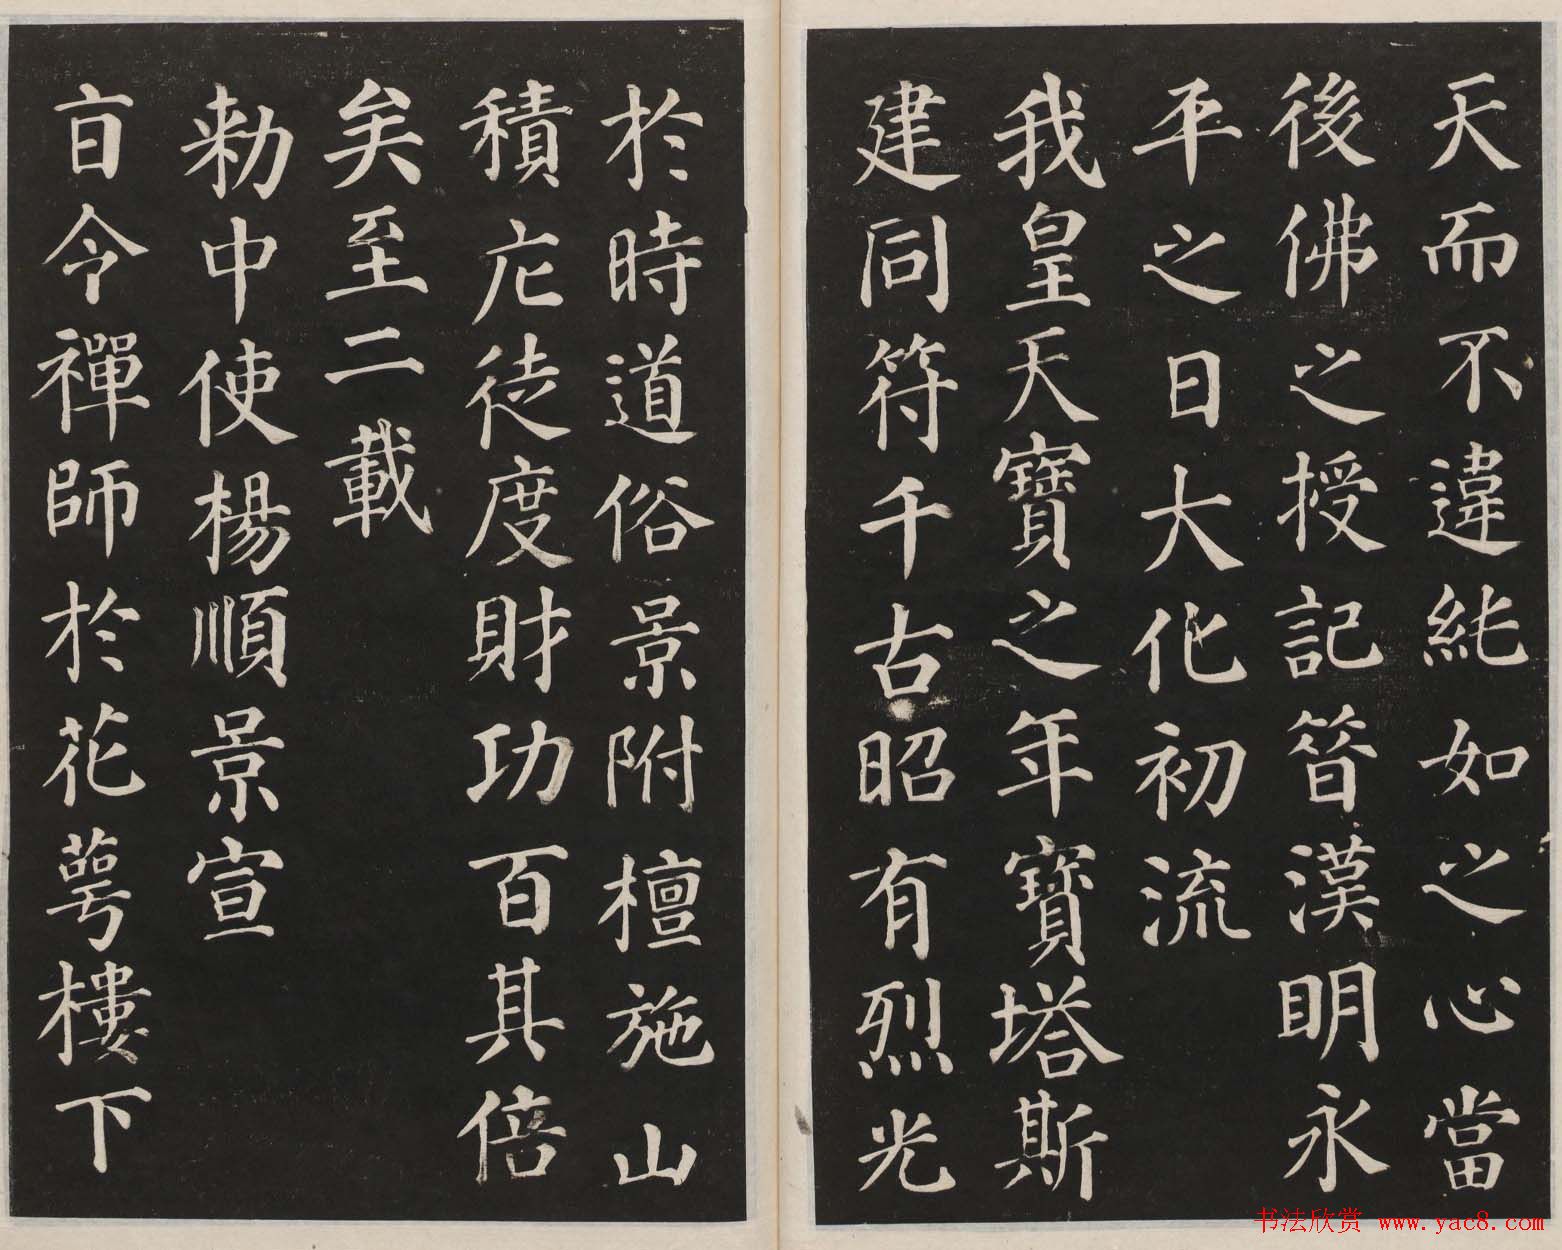 天而不違純如之心當
後佛之授記昔漢明永
平之日大化初流
我皇天寶之年寶塔斯
建同符千古昭有烈光
於時道俗景附檀施山
積庀徒度財功百其倍
矣至二載
勑中使楊順景宣
旨令禪師於花萼樓下
书法欣赏 www.yac8.com